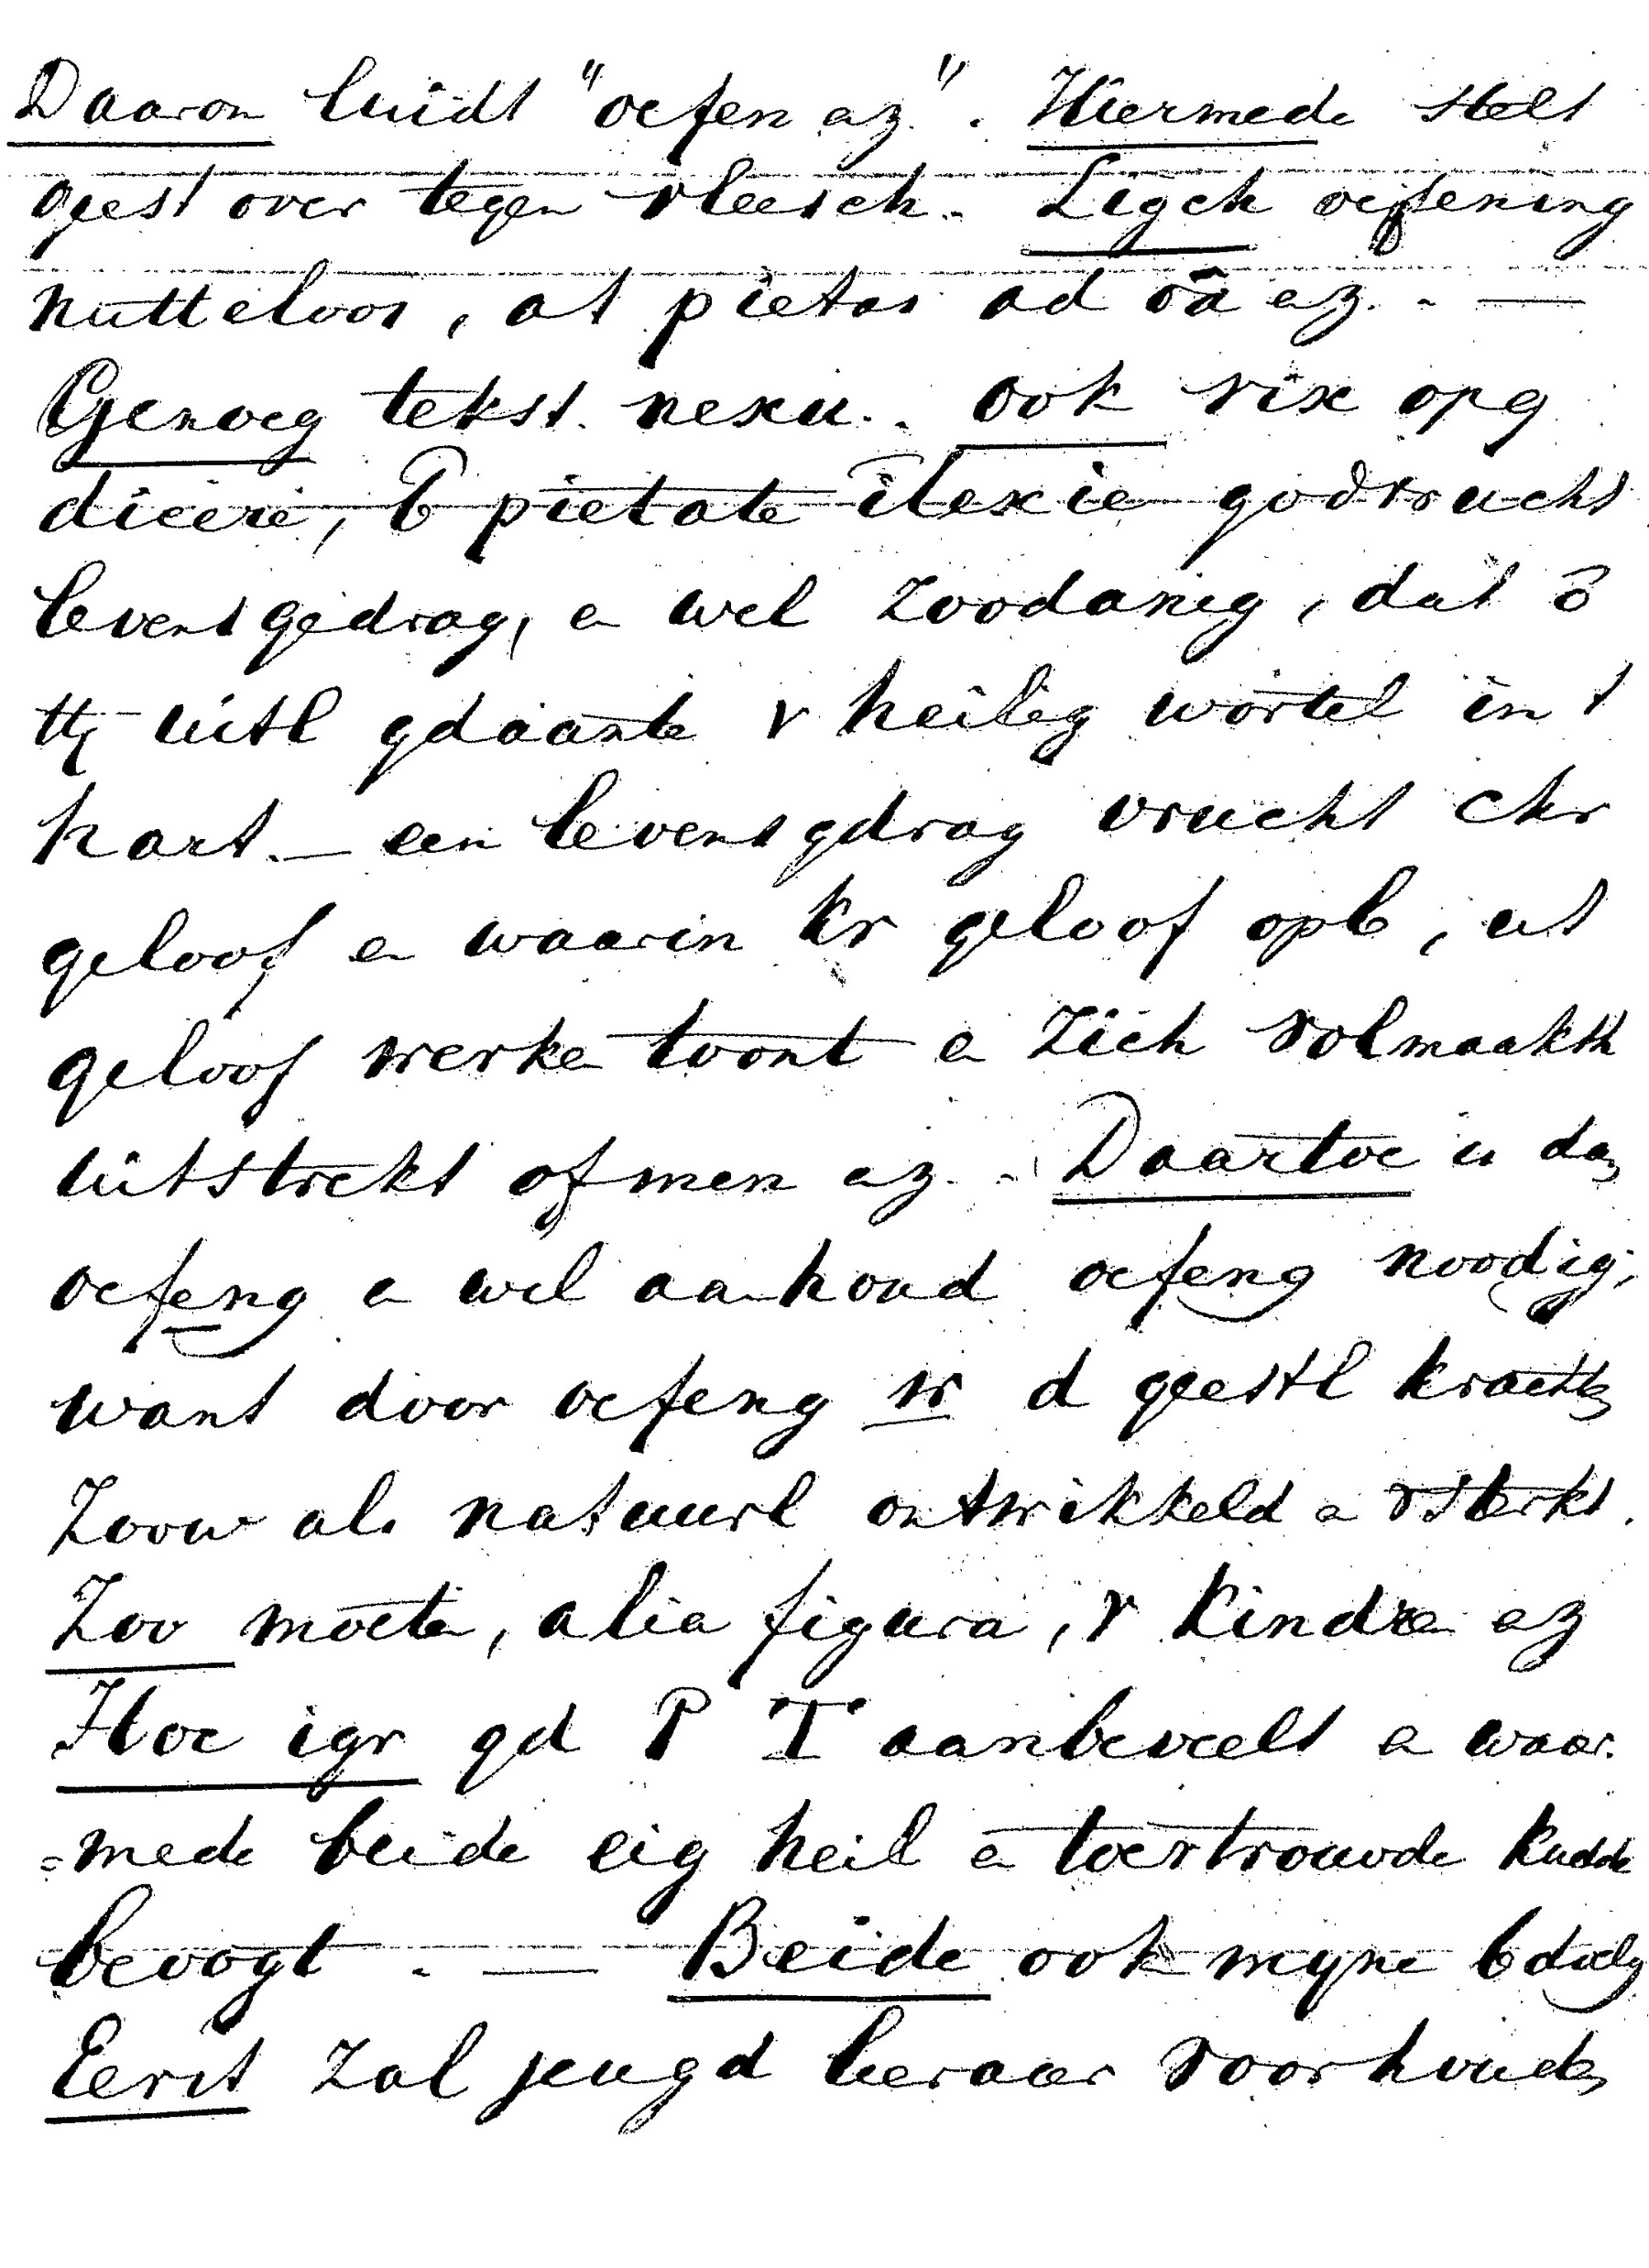 Daarom luidt "oefen az.". Hiermede stelt
geest over tegen vleesch. Ligch oefening
nutteloos, at pietas ad oā az. —
Genoeg tekst. nexu. ook vix opg
dicere, pietate godvrucht
levensgedrag, en wel zoodanig, dat ō
tg uitl gdaante v heilig wortel in t
hart. — een levensgdrag vrucht chr
geloof en waarin kr geloof opl, ut
geloof werken toont en zich volmaakth
uitstrekt of men az. Daartoe is dan
oefeng en wel aanhoud oefeng noodig,
want door oefeng w d geestl krachten
zoow als natuurl ontwikkeld en vsterkt.
Zoo moeten, alia figura, v kindren az
Hoe igr gd P T aanbeveelt en waar=
=mede beide eig heil en toevertrouwde kudde
beoogt. — Beide ook myne bdoelg
Eerst zal jeugd leeraar voorhouden